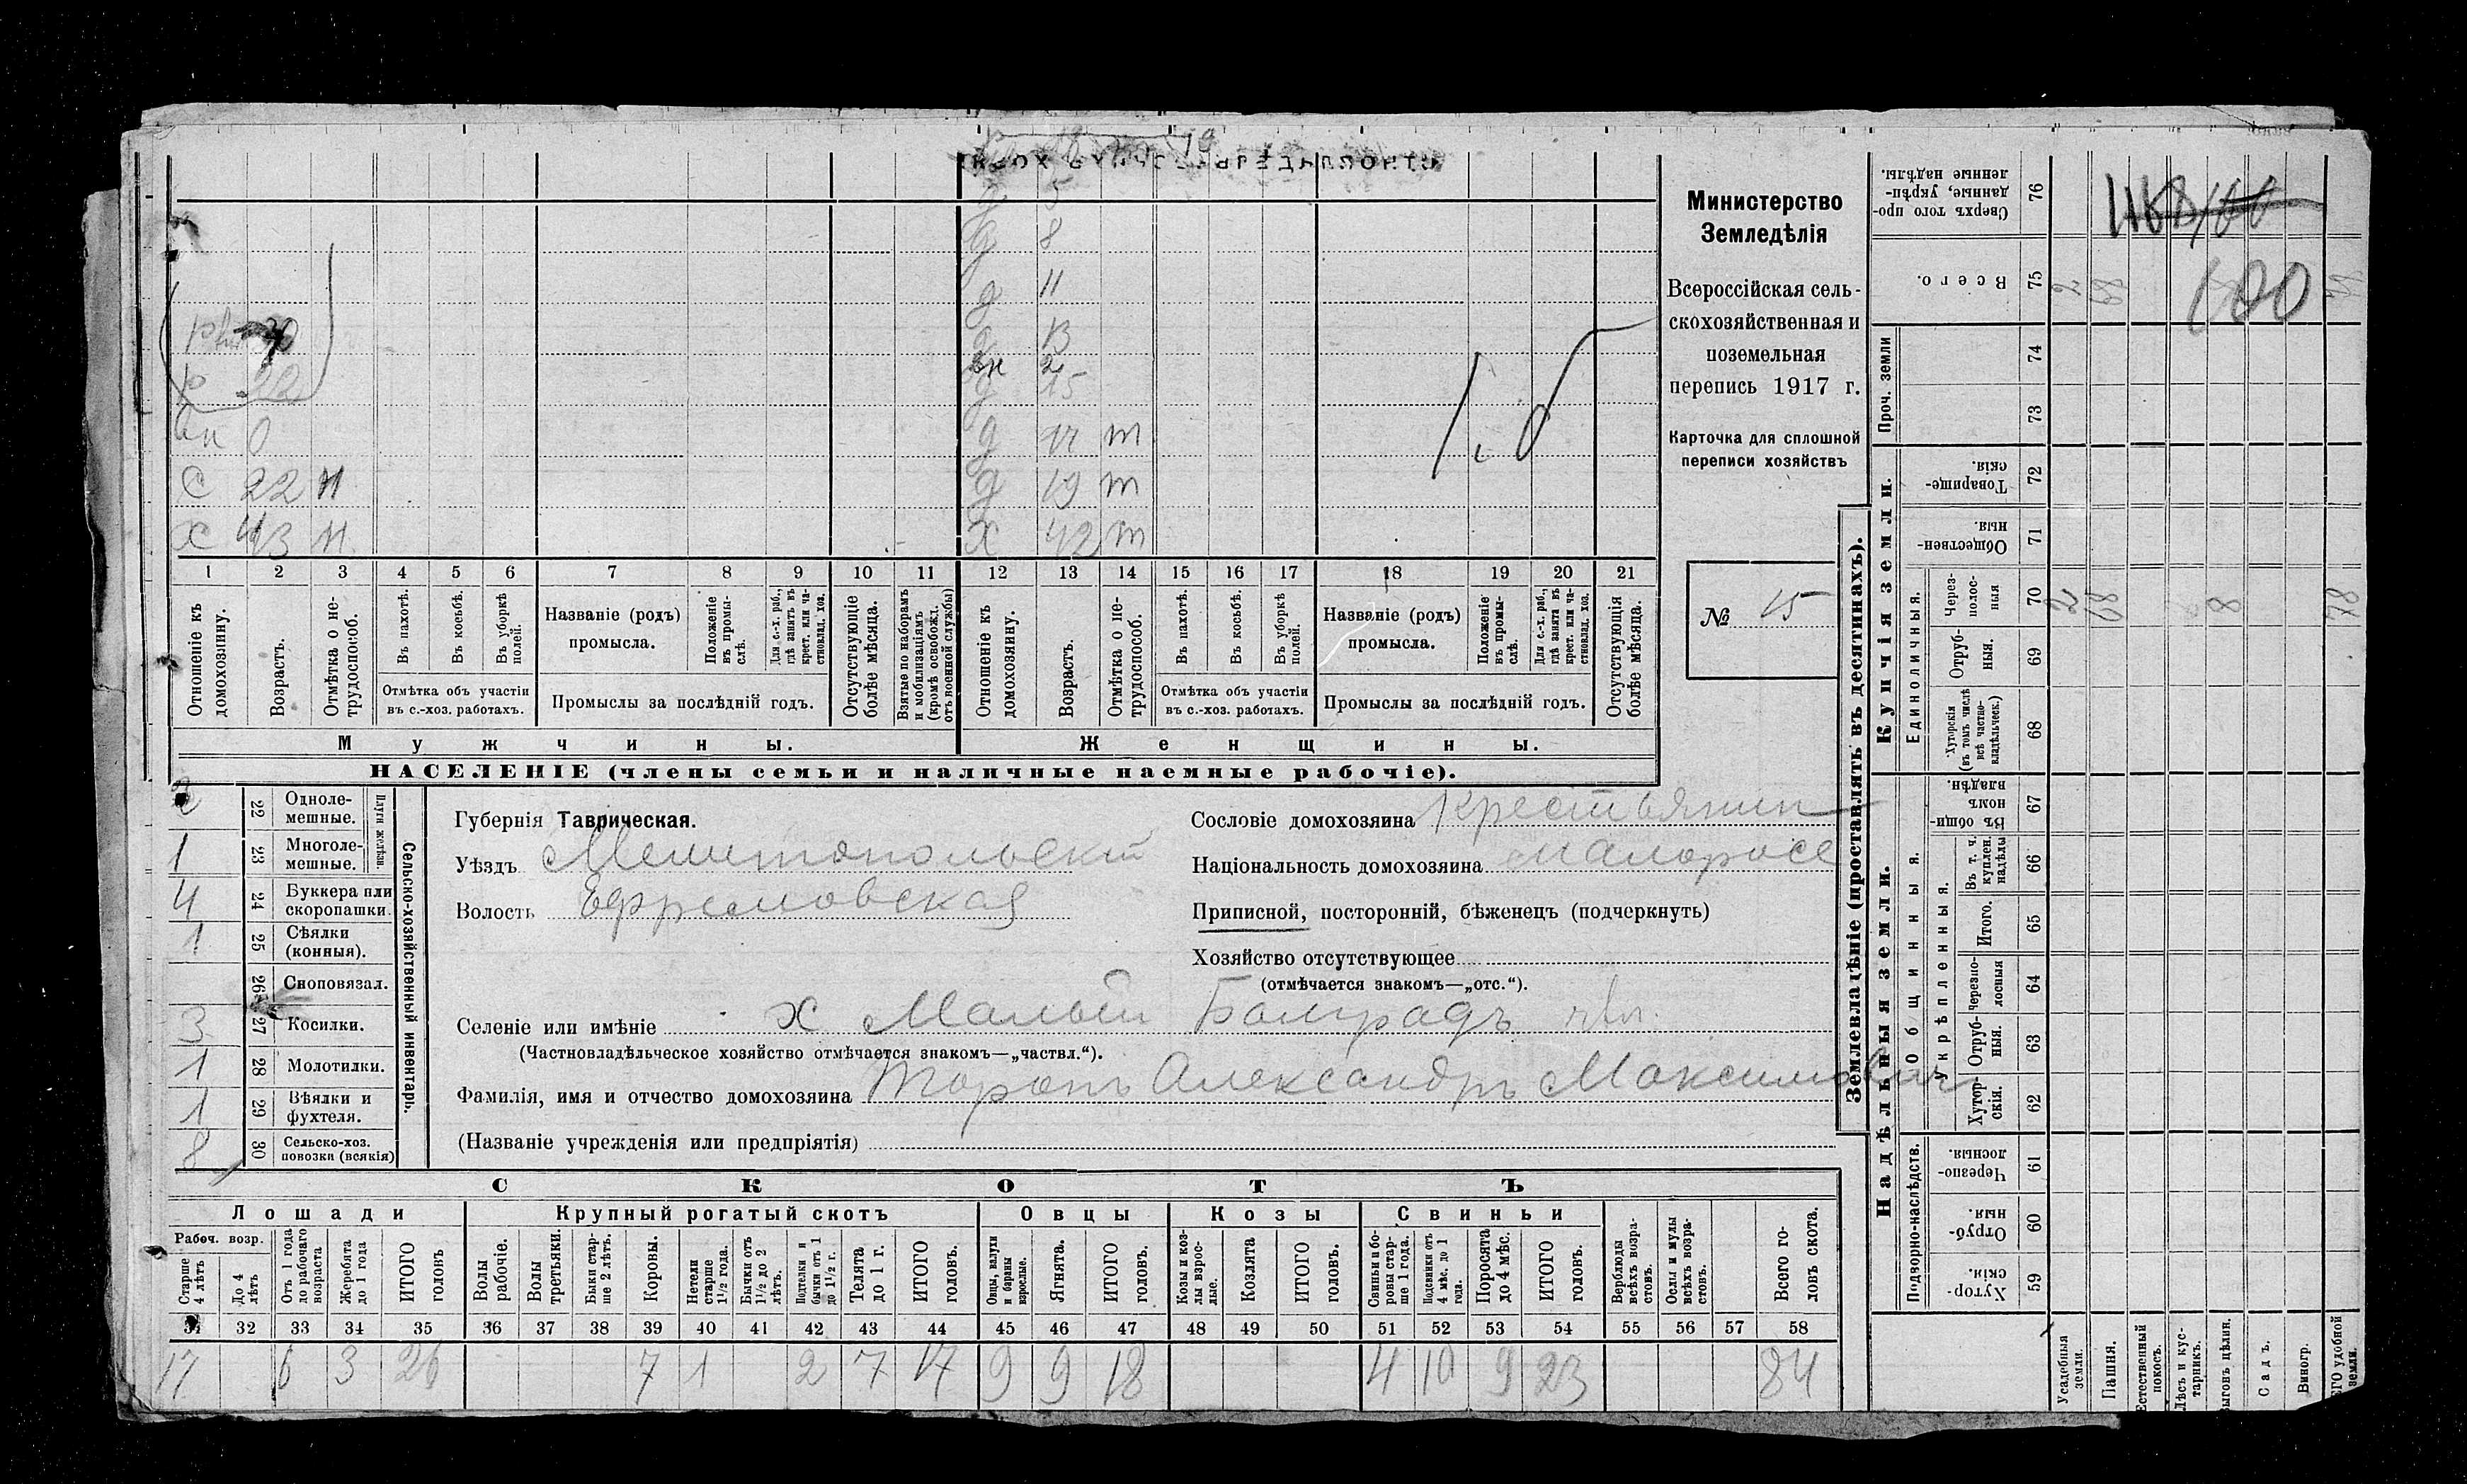 х 43 н
с 22 н
вн 0
р 22
х 42 т
д 19 т
д 17 т
д 15
вн 2
д 13
д 11
д 8
д 5
1 2 3 4 5 6 7 8 9 10 11 12 13 14 15 16 17 18 19 20 21
Отношеніе къ домохозяину.
Возрастъ.
Отмѣтка о не-трудоспособ.
Въ пахотѣ.
Въ косьбѣ.
Въ уборкѣ полей.
Отмѣтка объ участіи въ с.-хоз. работахъ.
Названіе (родъ) промысла.
Положеніе въ промы-слѣ.
Для с.-х. раб., гдѣ занятъ въ крест. или ча-стновлад. хоз.
Промыслы за послѣдній годъ.
Отсутствующіе болѣе мѣсяца.
Взятые по наборамъ и мобилизаціямъ (кромѣ освобожд. отъ военной службы)
Отношеніе къ домохозяину.
Возрастъ.
Отмѣтка о не-трудоспособ.
Въ пахотѣ.
Въ косьбѣ.
Въ уборкѣ полей.
Отмѣтка объ участіи въ с.-хоз. работахъ.
Названіе (родъ) промысла.
Положеніе въ промы-слѣ.
Для с.-х. раб., гдѣ занята въ крест. или ча-стновлад. хоз.
Промыслы за послѣдній годъ.
Отсутствующія болѣе мѣсяца.
Мужчины.
Женщины.
НАСЕЛЕНІЕ (члены семьи и наличные наемные рабочіе).
Министерство
Земледѣлія
Всероссійская сель-
скохозяйственная и
поземельная
перепись 1917 г.
Карточка для сплошной
переписи хозяйствъ
№ 15
Сельско-хозяйственный инвентарь.
Плуги желѣзн.
2 22 Одноле-мешные.
1 23 Многоле-мешные.
4 24 Буккера или скоропашки.
1 25 Сѣялки (конныя).
26 Сноповязал.
3 27 Косилки.
1 28 Молотилки.
1 29 Вѣялки и фухтеля.
8 30 Сельско-хоз. повозки (всякія)
Губернія Таврическая.
Уѣздъ Мелитопольскій
Волость Ефремовская
Сословіе домохозяина Крестьянин
Національность домохозяина Малоросс
Приписной, посторонній, бѣженецъ (подчеркнуть)
Хозяйство отсутствующее
(отмѣчается знакомъ—„отс.“).
Селеніе или имѣніе х Малый Болградъ
(Частновладѣльческое хозяйство отмѣчается знакомъ—„частвл.“).
Фамилія, имя и отчество домохозяина Торопъ Александръ Максимович
(Названіе учрежденія или предпріятія)
СКОТЪ
Лошади
Крупный рогатый скотъ
Овцы
Козы
Свиньи
Рабоч. возр.
Старше 4 лѣтъ
До 4 лѣтъ
Отъ 1 года до рабочаго возраста
Жеребята до 1 года
ИТОГО головъ
Волы рабочіе.
Волы третьяки.
Быки стар-ше 2 лѣтъ.
Коровы.
Нетели старше 1½ года.
Бычки отъ 1½ до 2 лѣтъ.
Подтелки и бычки отъ 1 до 1½ г.
Телята до 1 г.
ИТОГО головъ.
Овцы, валухи и бараны взрослые.
Ягнята.
ИТОГО головъ.
Козы и коз-лы взрос-лые.
Козлята
ИТОГО головъ.
Свиньи и бо-ровы стар-ше 1 года.
Подсвинки отъ 4 мѣс. до 1 года.
Поросята до 4 мѣс.
ИТОГО головъ.
Верблюды всѣхъ возра-стовъ.
Ослы и мулы всѣхъ возра-стовъ.
Всего го-ловъ скота.
31 32 33 34 35 36 37 38 39 40 41 42 43 44 45 46 47 48 49 50 51 52 53 54 55 56 57 58
17 6 3 26 7 1 2 7 17 9 9 18 4 10 9 23 84
Землевладѣніе (проставлять въ десятинахъ).
Надѣльныя земли.
Купчія земли.
Проч. земли
Подворно-наслѣдств.
Общинныя.
Укрѣпленныя.
Единоличныя.
Хутор-скія. 59
Отруб-ныя. 60
Черезпо-лосныя 61
Хутор-скія. 62
Отруб-ныя. 63
Черезпо-лосныя 64
Итого. 65
Въ т. ч. куплен. надѣлы 66
Въ общин-номъ владѣн. 67
Хуторскія (въ томъ числѣ всѣ частно-владѣльческ.) 68
Отруб-ныя. 69
Через-полос-ныя 70
Обществен-ныя. 71
Товарище-скія. 72
73
74
Всего. 75
Сверхъ того про-данные, укрѣп-ленные надѣлы. 76
Усадебныя земли.
Пашня.
Естественный покосъ.
Лѣсъ и кус-тарникъ.
Выгонъ цѣлин.
Садъ.
Виногр.
ЕГО удобной земли.
100